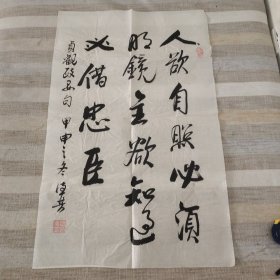 人欲自照必须
明镜主欲知过
必借忠臣
贞观政要句 甲申之冬